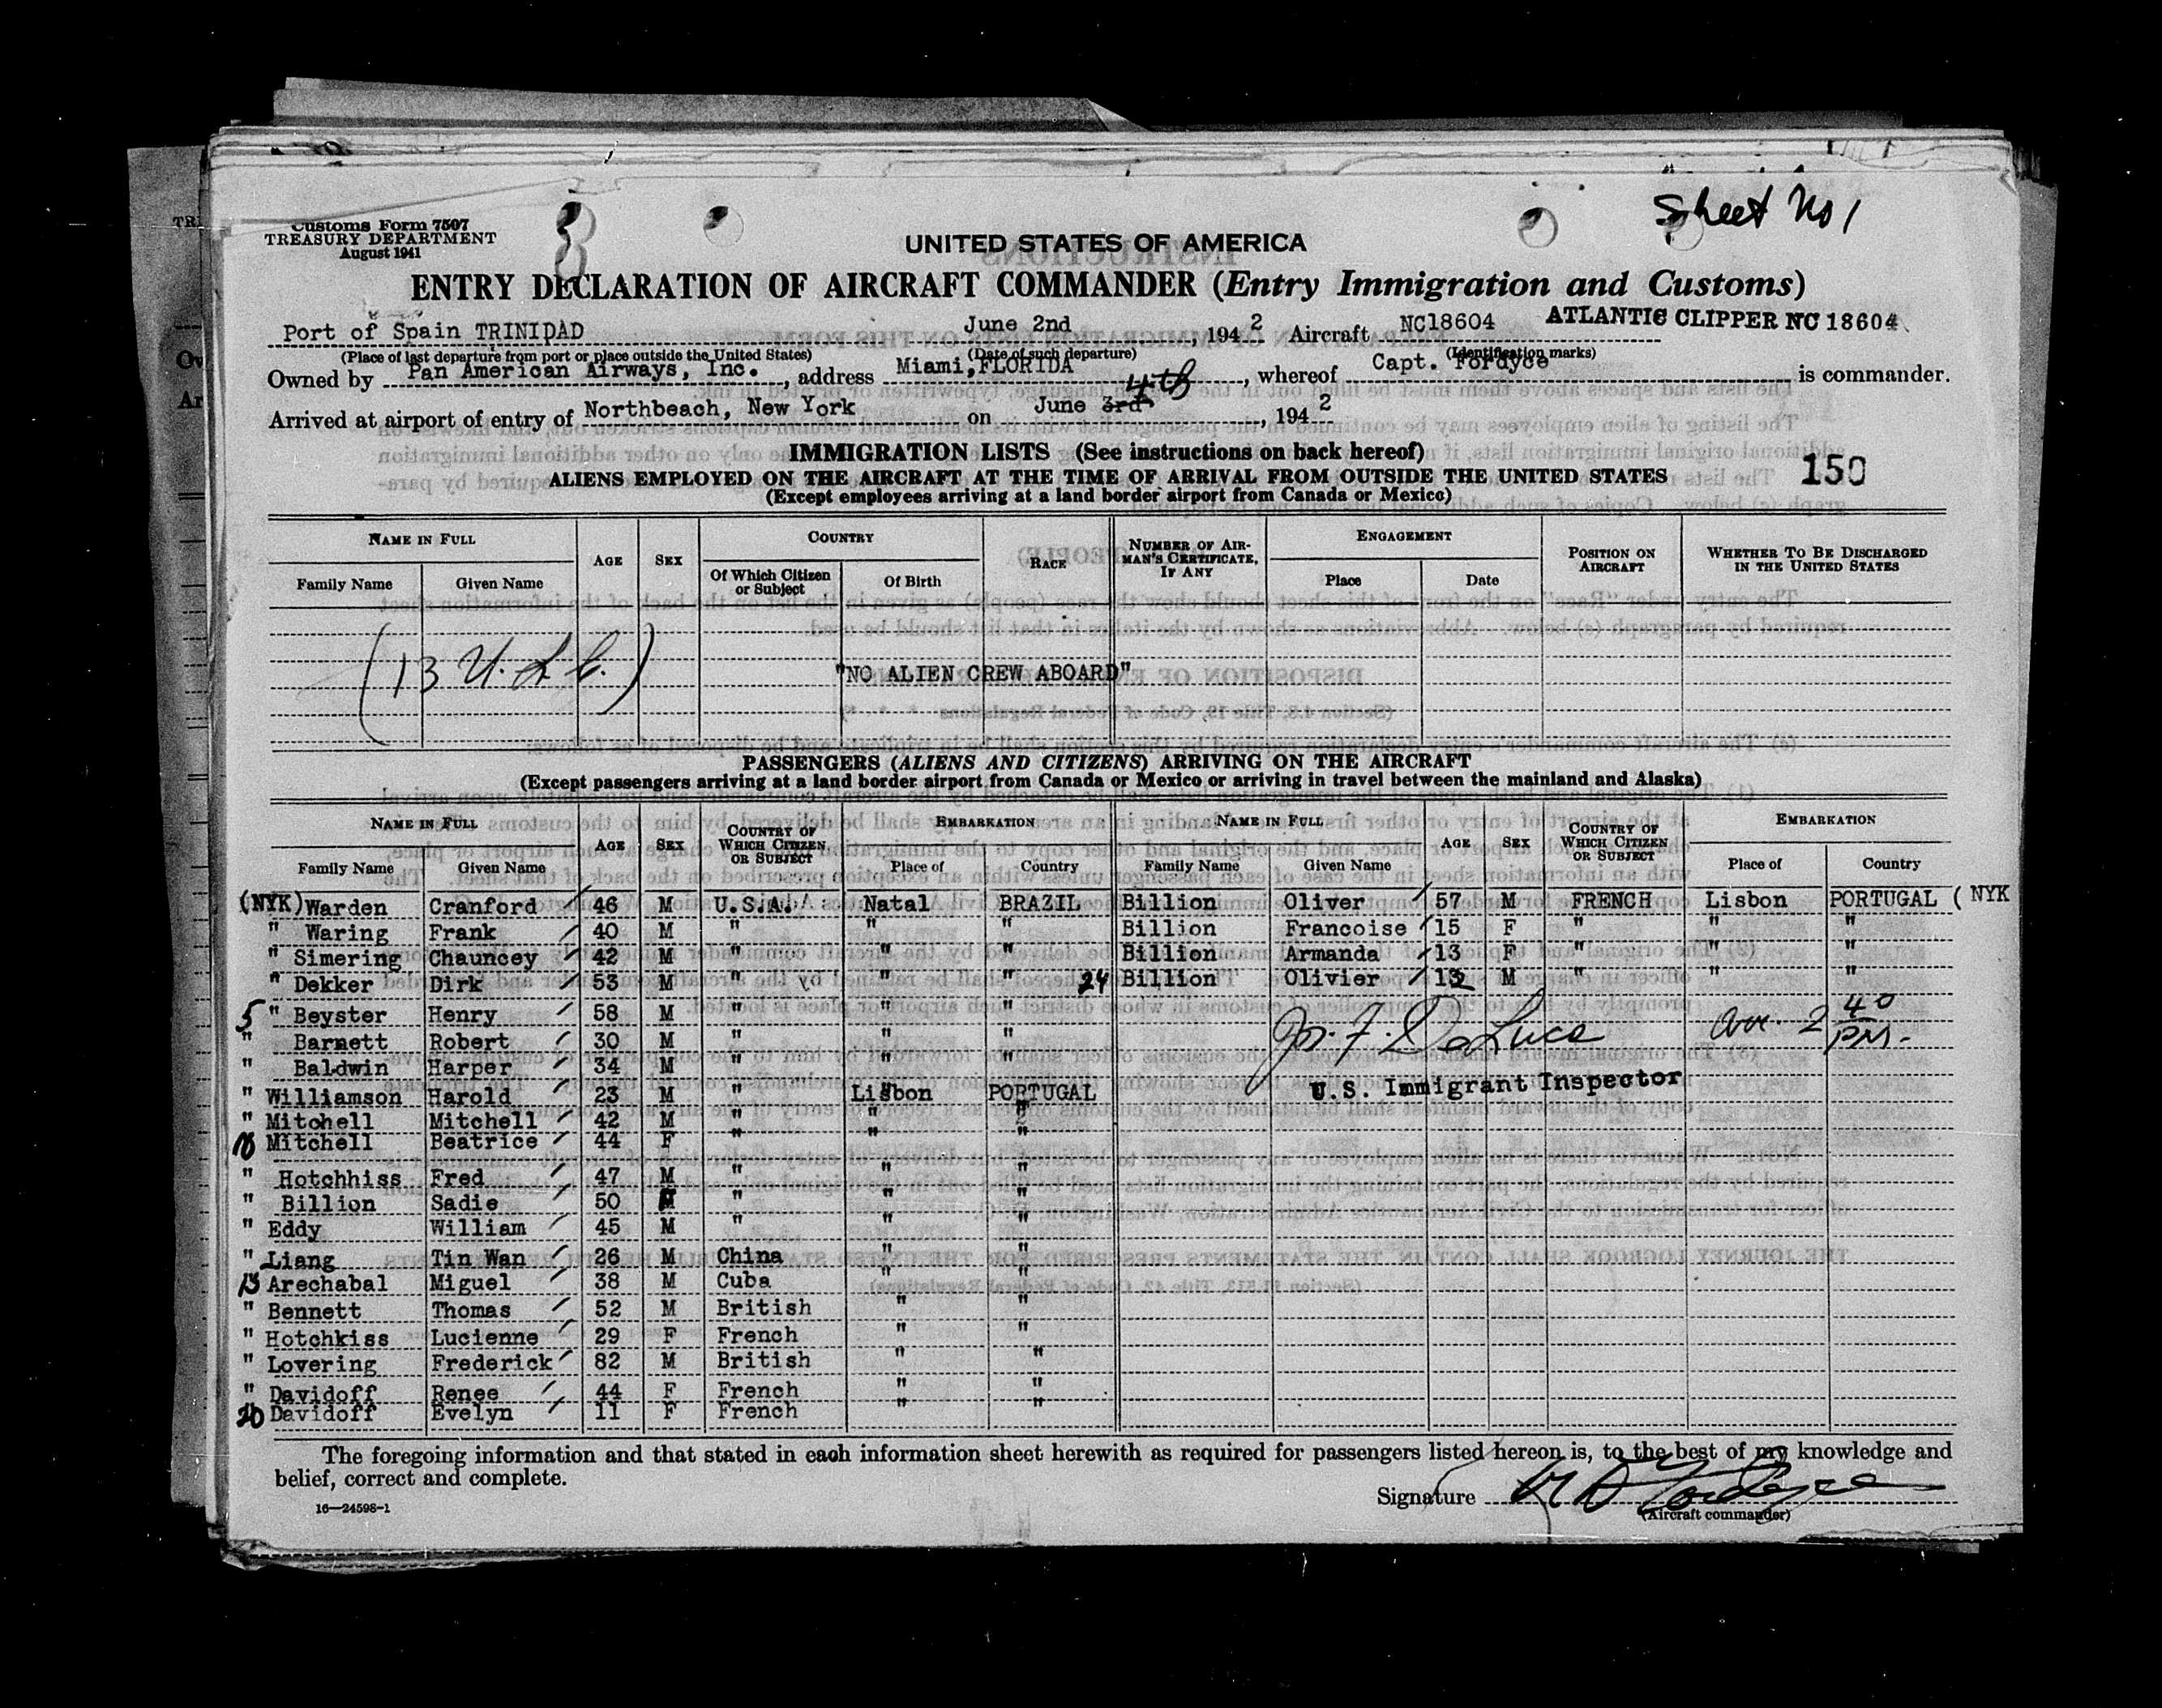 Sheet No 1
Customs Form 7507
TREASURY DEPARTMENT
August 1941
UNITED STATES OF AMERICA
ENTRY DECLARATION OF AIRCRAFT COMMANDER (Entry Immigration and Customs)
Port of Spain TRINIDAD June 2nd, 1942 Aircraft NC18604 ATLANTIC CLIPPER NC 18604
(Place of last departure from port or place outside the United States) (Date of such departure) (Identification marks)
Owned by Pan American Airways, Inc., address Miami, FLORIDA, whereof Capt. Fordyce is commander.
Arrived at airport of entry of Northbeach, New York on June 3rd 4th, 1942
IMMIGRATION LISTS (See instructions on back hereof)
ALIENS EMPLOYED ON THE AIRCRAFT AT THE TIME OF ARRIVAL FROM OUTSIDE THE UNITED STATES 150
(Except employees arriving at a land border airport from Canada or Mexico)
NAME IN FULL AGE SEX COUNTRY RACE NUMBER OF AIRMAN'S CERTIFICATE, IF ANY ENGAGEMENT POSITION ON AIRCRAFT WHETHER TO BE DISCHARGED IN THE UNITED STATES
Family Name Given Name Of Which Citizen or Subject Of Birth Place Date
(13 U.S.C.) "NO ALIEN CREW ABOARD"
PASSENGERS (ALIENS AND CITIZENS) ARRIVING ON THE AIRCRAFT
(Except passengers arriving at a land border airport from Canada or Mexico or arriving in travel between the mainland and Alaska)
NAME IN FULL AGE SEX COUNTRY OF WHICH CITIZEN OR SUBJECT EMBARKATION NAME IN FULL AGE SEX COUNTRY OF WHICH CITIZEN OR SUBJECT EMBARKATION
Family Name Given Name Place of Country Family Name Given Name Place of Country
(NYK) Warden Cranford 46 M U.S.A. Natal BRAZIL Billion Oliver 57 M FRENCH Lisbon PORTUGAL (NYK
" Waring Frank 40 M " " " Billion Francoise 15 F " " "
" Simering Chauncey 42 M " " " Billion Armanda 13 F " " "
" Dekker Dirk 53 M " " " 24 Billion Olivier 12 M " " "
5 " Beyster Henry 58 M " " " Jos. F. DeLuca Arr. 2 40 PM.
" Barnett Robert 30 M " " "
" Baldwin Harper 34 M " " "
" Williamson Harold 23 M " Lisbon PORTUGAL U.S. Immigrant Inspector
" Mitchell Mitchell 42 M " " "
10 Mitchell Beatrice 44 F " " "
" Hotchhiss Fred 47 M " " "
" Billion Sadie 50 " " "
" Eddy William 45 M " " "
" Liang Tin Wan 26 M China " "
15 Arechabal Miguel 38 M Cuba " "
" Bennett Thomas 52 M British " "
" Hotchkiss Lucienne 29 F French " "
" Lovering Frederick 82 M British " "
" Davidoff Renee 44 F French " "
20 Davidoff Evelyn 11 F French " "
The foregoing information and that stated in each information sheet herewith as required for passengers listed hereon is, to the best of my knowledge and
belief, correct and complete.
Signature
16—24598-1
(Aircraft commander)